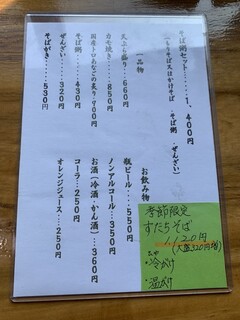 そば粥セット……1,400円
(もりそば又はかけそば
・そば粥
・ぜんざい)
一品物
天ぷら盛り…660円
かも焼き……850円
国産トロあなごの炙り 900円
そば粥……430円
ぜんざい……320円
そばがき……530円
お飲み物
瓶ビール……550円
ノンアルコール…330円
お酒(冷酒・かん酒)…360円
コーラ……250円
オレンジジュース…250円
季節限定
すだちそば
(大盛320円増)
・冷かけ
・温かけ